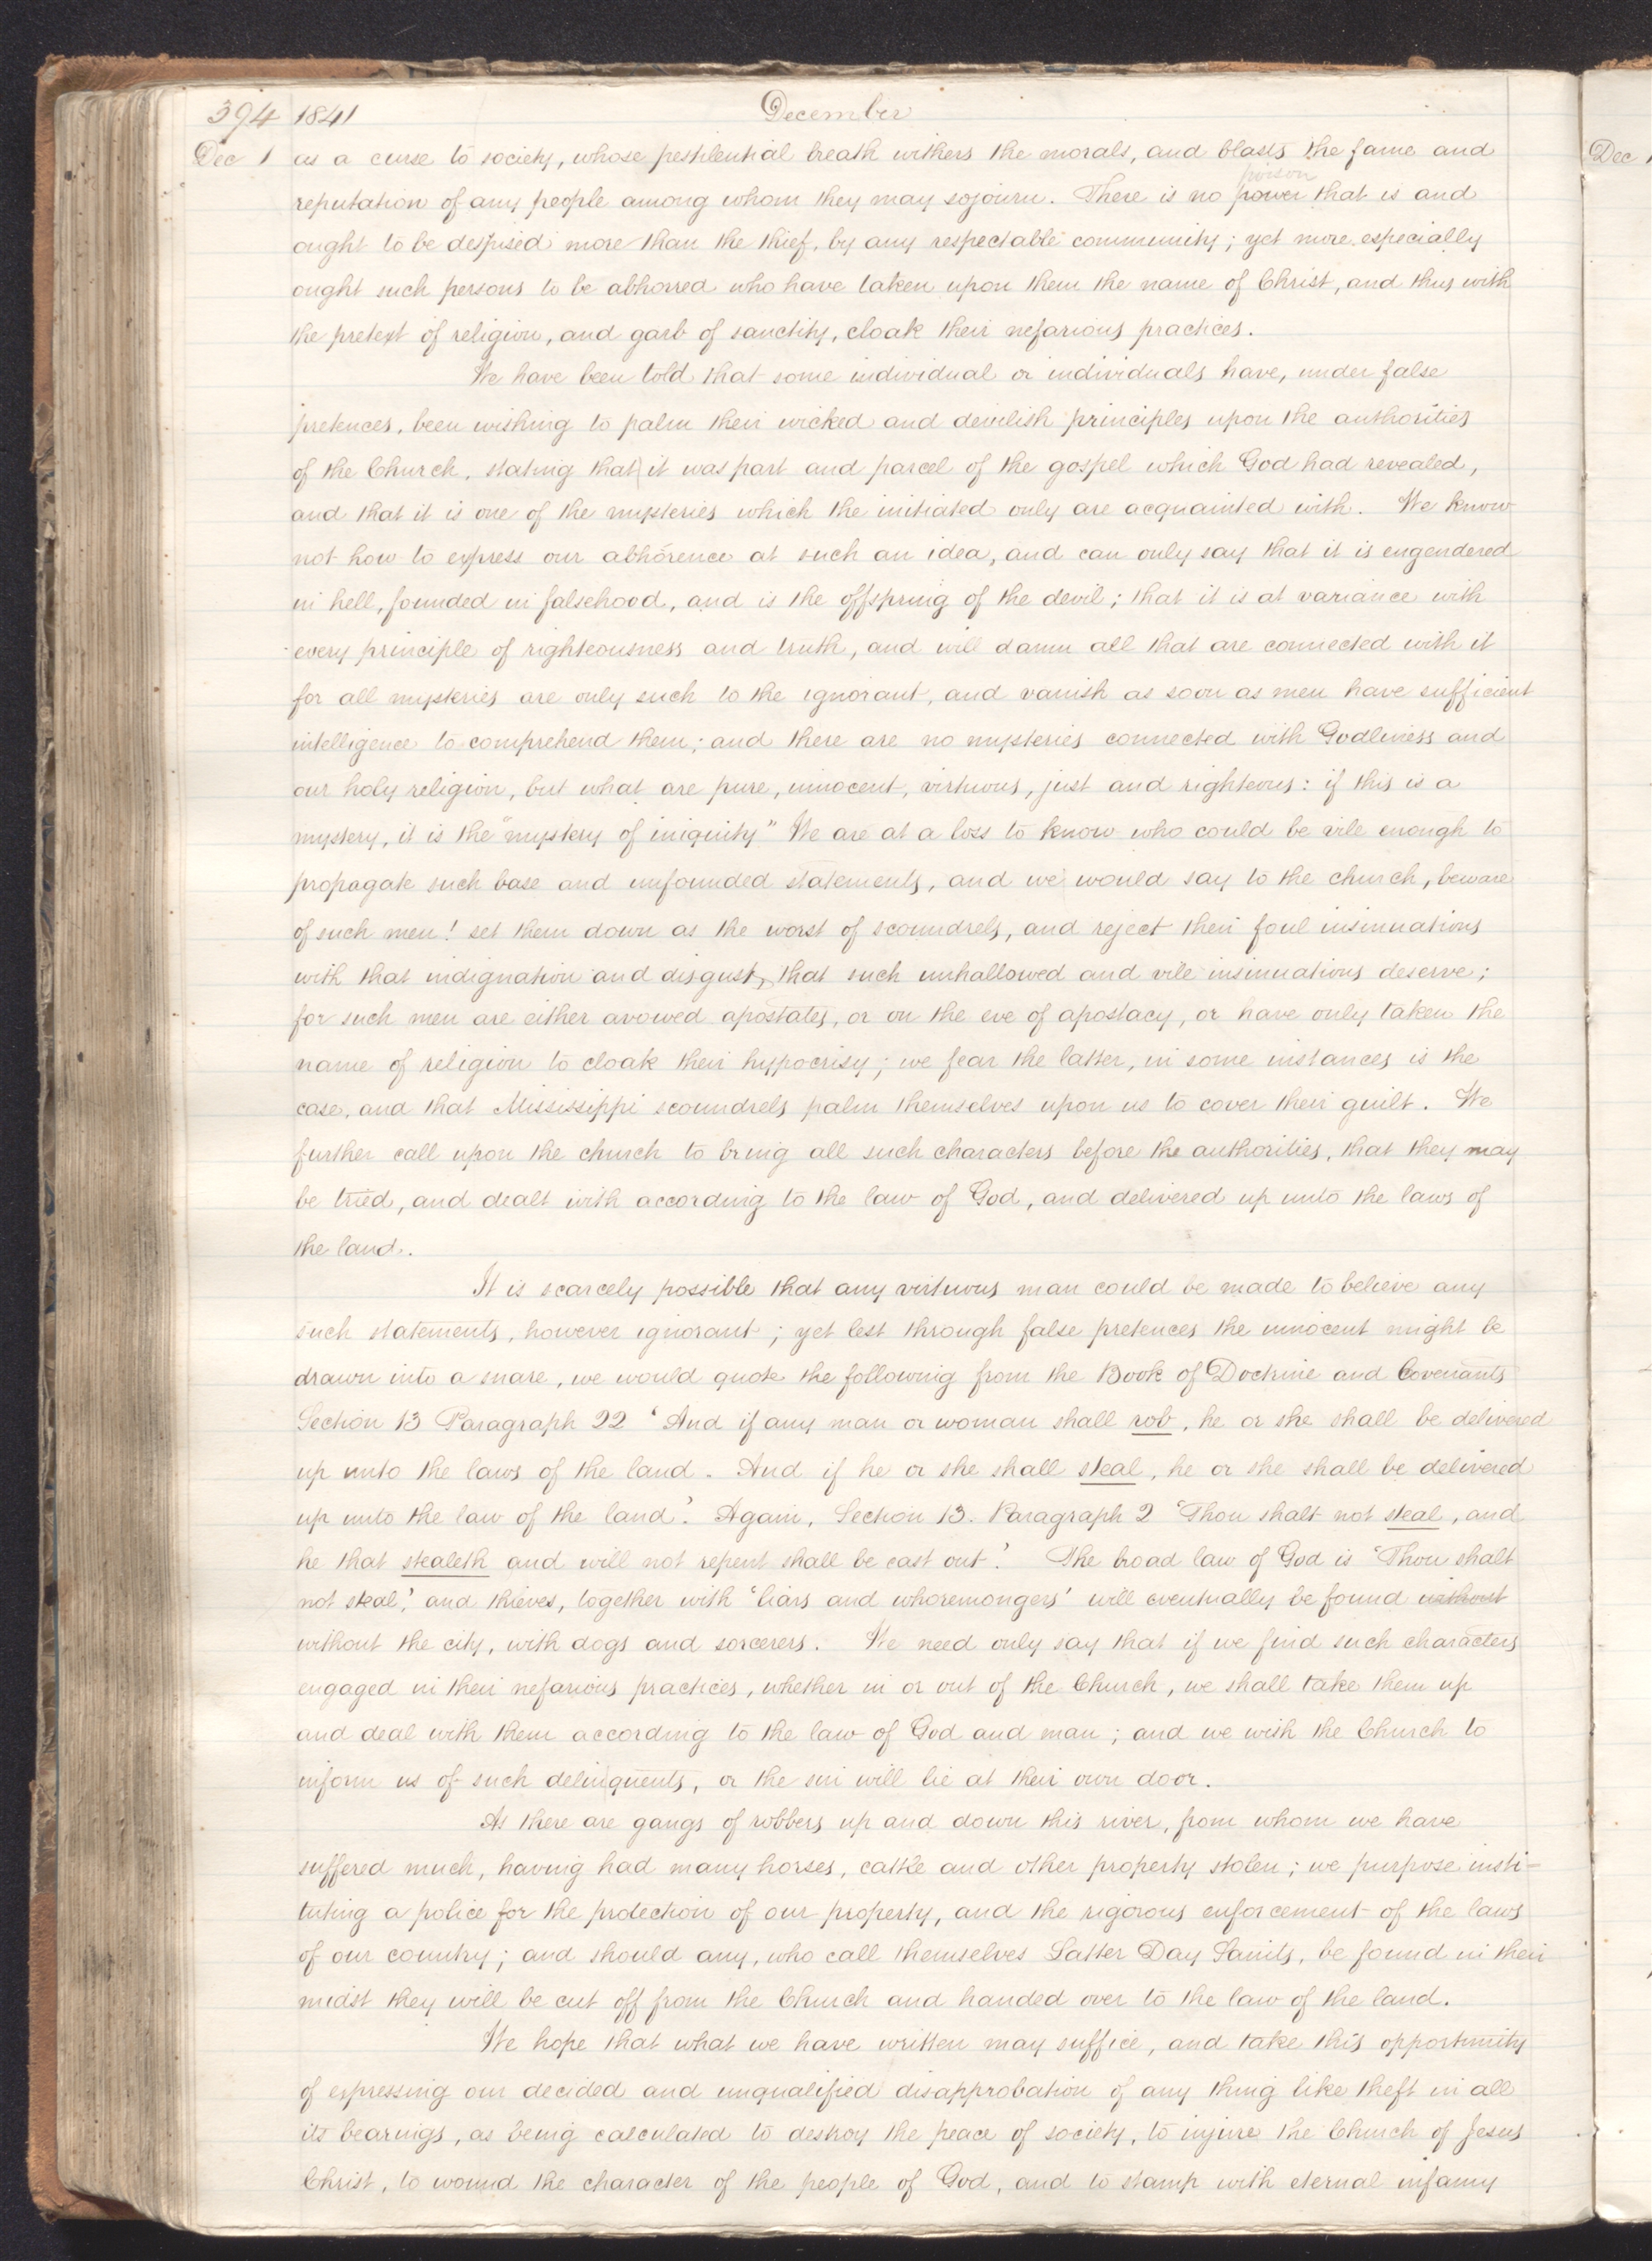 394 1841 December
Dec 1 as a curse to society, whose pestilential breath withers the morals, and blasts the fame and
poison
reputation of any people among whom they may sojourn. There is no power that is and
ought to be despised more than the thief, by any respectable community; yet more especially
ought such persons to be abhorred who have taken upon them the name of Christ, and thus with
the pretext of religion, and garb of sanctity, cloak their nefarious practices.
We have been told that some individual or individuals have, under false
pretences, been wishing to palm their wicked and devilish principles upon the authorities
of the Church, stating that it was part and parcel of the gospel which God had revealed,
and that it is one of the mysteries which the initiated only are acquainted with. We know
not how to express our abhorence at such an idea, and can only say that it is engendered
in hell, founded in falsehood, and is the offspring of the devil; that it is at variance with
every principle of righteousness and truth, and will damn all that are connected with it
for all mysteries are only such to the ignorant, and vanish as soon as men have sufficient
intelligence to comprehend them; and there are no mysteries connected with Godliness and
our holy religion, but what are pure, innocent, virtuous, just and righteous: if this is a
mystery, it is the "mystery of iniquity" We are at a loss to know who could be vile enough to
propagate such base and unfounded statements, and we would say to the church, beware
of such men! set them down as the worst of scoundrels, and reject their foul insinuations
with that indignation and disgust, that such unhallowed and vile insinuations deserve;
for such men are either avowed apostates, or on the eve of apostacy, or have only taken the
name of religion to cloak their hypocrisy; we fear the latter, in some instances is the
case, and that Mississippi scoundrels palm themselves upon us to cover their guilt. We
further call upon the church to bring all such characters before the authorities, that they may
be tried, and dealt with according to the law of God, and delivered up unto the laws of
the land.
It is scarcely possible that any virtuous man could be made to believe any
such statements, however ignorant; yet lest through false pretences the innocent might be
drawn into a snare, we would quote the following from the Book of Doctrine and Covenants
Section 13 Paragraph 22 'And if any man or woman shall rob, he or she shall be delivered
up unto the laws of the land. And if he or she shall steal, he or she shall be delivered
up unto the law of the land.' Again, Section 13. Paragraph 2 'Thou shalt not steal, and
he that stealeth and will not repent shall be cast out.' The broad law of God is 'Thou shalt
not steal,' and thieves, together with 'liars and whoremongers' will eventually be found without
without the city, with dogs and sorcerers. We need only say that if we find such characters
engaged in their nefarious practices, whether in or out of the Church, we shall take them up
and deal with them according to the law of God and man; and we wish the Church to
inform us of such delinquents, or the sin will lie at their own door.
As there are gangs of robbers up and down this river, from whom we have
suffered much, having had many horses, cattle and other property stolen; we purpose insti-
tuting a police for the protection of our property, and the rigorous enforcement of the laws
of our country; and should any, who call themselves Latter Day Saints, be found in their
midst they will be cut off from the Church and handed over to the law of the land.
We hope that what we have written may suffice, and take this opportunity
of expressing our decided and unqualified disapprobation of any thing like theft in all
its bearings, as being calculated to destroy the peace of society, to injure the Church of Jesus
Christ, to wound the character of the people of God, and to stamp with eternal infamy
Dec 1